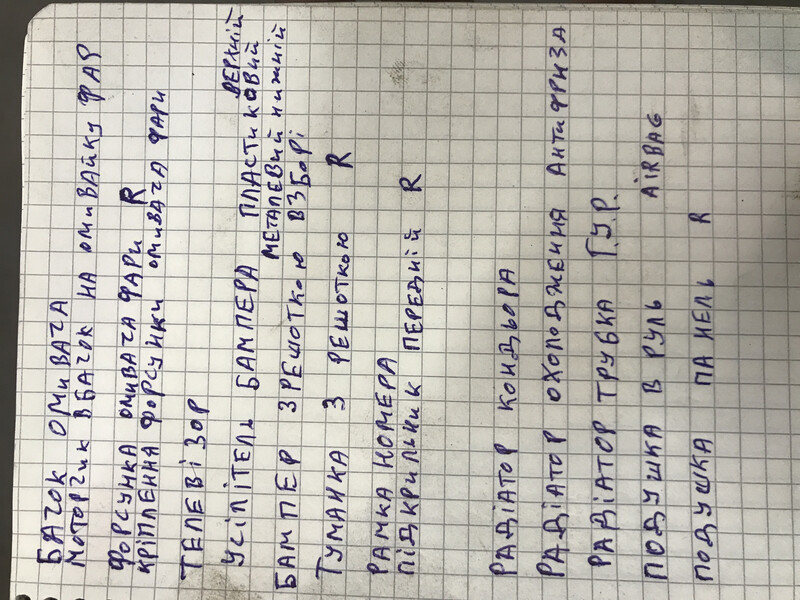 БАЧОК ОМИВАЧА
МОТОРГИК В БАЧОК НА ОМИВАЙКУ ФАР
ФОРСУНКА ОМИВАЧА ФАРИ R
КРІПЛЕННА ФОРСУНКИ ОМИВАЧА ФАРИ
ТЕЛЕВІЗОР
УСІЛІТЕЛЬ БАМПЕРА ПЛАСТИКОВИЙ ВЕРХНІЙ
МЕТАЛЕВИЙ НИЖНІЙ
БАМПЕР З РЕШОТКОЮ В ЗБОРІ
ТУМАНКА З РЕШОТКОЮ R
РАМКА НОМЕРА
ПІДКРИЛЬНИК ПЕРЕДНІЙ R
РАДІАТОР КОНДЬОРА
РАДІАТОР ОХОЛОДЖЕННЯ АНТИФРИЗА
РАДІАТОР ТРУБКА Г.У.Р.
ПОДУШКА В РУЛЬ AiRBAG
ПОДУШКА ПАНЕЛЬ R